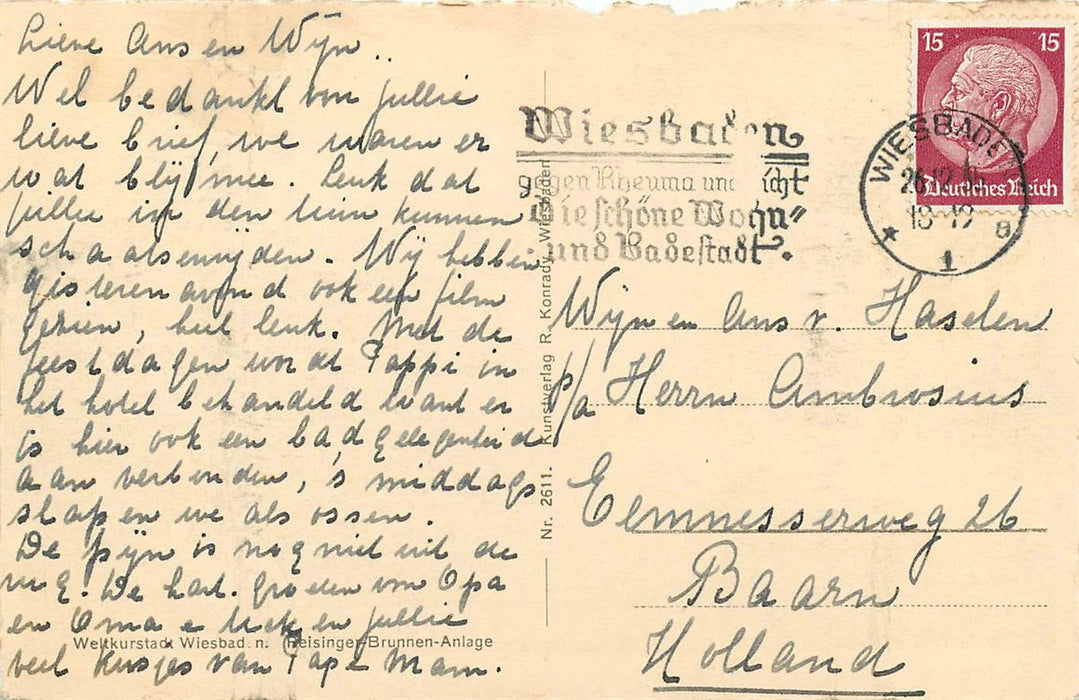 Lieve Ans en Wijn.
Wel bedankt von jullie
lieve brief, we waren er
wat blij mee. Leuk dat
jullie in den tuin kunnen
schaatsenrijden. Wij hebben
gisterenavond ook een film
gezien, heel leuk. Met de
feestdagen wordt Pappi in
het hotel behandeld want er
is hier ook een badgelegenheid
aan verbonden, 's middags
slapen we als ossen.
De pijn is nog niet uit de
rug. De hart. groeten von Opa
en Oma e en jullie
veel kusjes van Pap & Mam.
Weltkurstadt Wiesbaden. Reisinger-Brunnen-Anlage
Nr. 2611. Kunstverlag R. Konrady, Wiesbaden
Wiesbaden
gegen Rheuma und Gicht
Die schöne Wohn"
und Badestadt.
WIESBADEN
18-19
1
a
15 15
Deutsches Reich
Wijn en Ans v. Haselen
p/a Herrn Ambrosius
Eemnesserweg 26
Baarn
Holland